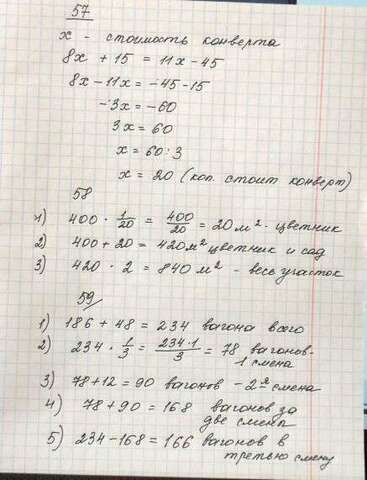 57
x - стоимость конверта
8x + 15 = 11x - 45
8x - 11x = -45 - 15
-3x = -60
3x = 60
x = 60 : 3
x = 20 (коп. стоит конверт)
58
1) 400 · 1/20 = 400/20 = 20 м² - цветник
2) 400 + 20 = 420 м² цветник и сад
3) 420 · 2 = 840 м² - весь участок
59
1) 186 + 48 = 234 вагона всего
2) 234 · 1/3 = 234·1/3 = 78 вагонов -
1 смена
3) 78 + 12 = 90 вагонов - 2я смена
4) 78 + 90 = 168 вагонов за
две смены
5) 234 - 168 = 166 вагонов в
третью смену